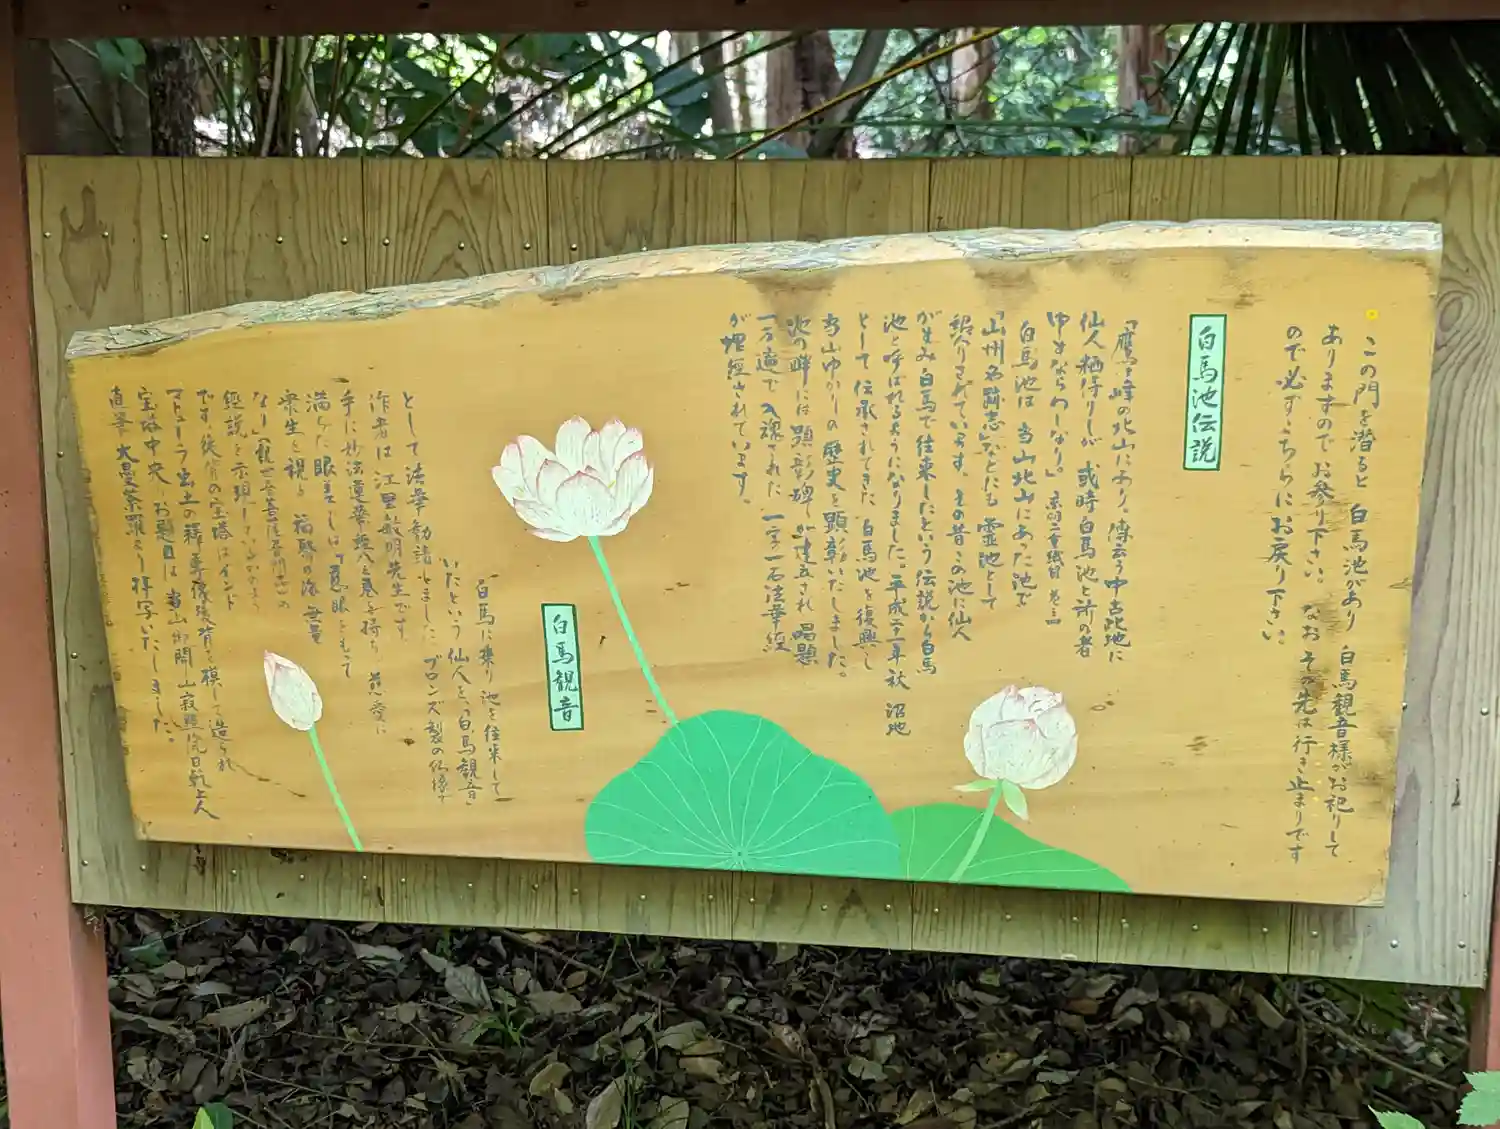 この門を潜ると 白馬池があり 白馬観音様がお祀りして
ありますのでお参り下さい。なお その先は行き止まりです
ので必ずこちらにお戻り下さい
白馬池伝説
「鷹ヶ峰の北山にあり。傳云う中古此地に
仙人栖侍りしが 或時白馬池と計の者
ゆきならわしなり。」 巻三
白馬池は 当山北山にあった池で
「山州名跡志」などにも 霊池として
紹介されています。その昔この池に仙人
が住み白馬で往来したという伝説から白馬
池と呼ばれるようになりました。平成二十一年秋 沼地
として伝承されてきた 白馬池を復興し
当山ゆかりの歴史を顕彰いたしました。
池の畔には題彰碑が建立され 唱題
一万遍で入魂された 一字一石法華経
が埋経されています。
白馬観音
白馬に乗り池を往来して
いたという仙人を、「白馬観音」
として法華勧請しました ブロンズ製の仏像で
作者は 江里敏明先生です
手に妙法蓮華経八巻を持ち 慈愛に
満ちた眼差しは「慈眼をもって
衆生を視る 福聚の海 無量
なり」(観世音菩薩普門品)の
経説を示現しているかのよう
です 後背の宝塔はインド
マトゥーラ出土の釋尊像後背を模して造られ
宝塔中央 お題目は 当山御開山寂照院日乾上人
直筆 大曼荼羅より拝写いたしました。